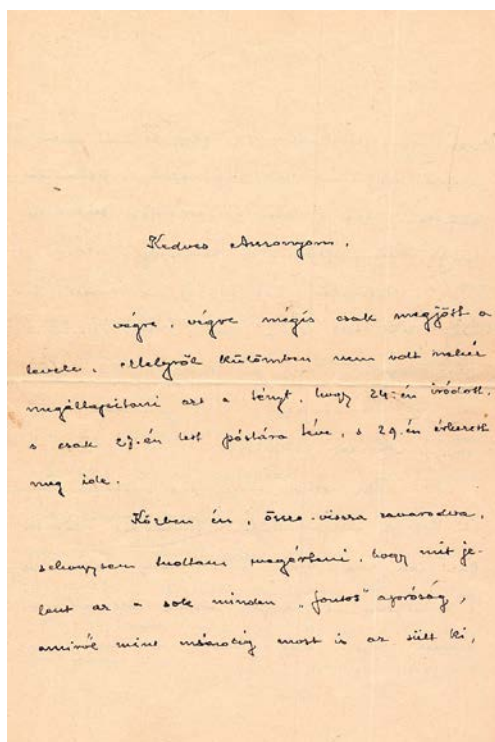 Kedves Asszonyom.
végre, végre mégis csak megjött a
levele. Melyről külömben nem volt nehéz
megállapitani azt a tényt, hogy 24.-én iródott.
s csak 27.-én lett póstára téve, s 29.-én érkezett
meg ide.
Közben én, össze-vissza zavarodva,
sehogysem tudtam megérteni, hogy mit je-
lent az a sok minden „fontos" apróság,
amiről mint mindig most is az sült ki,